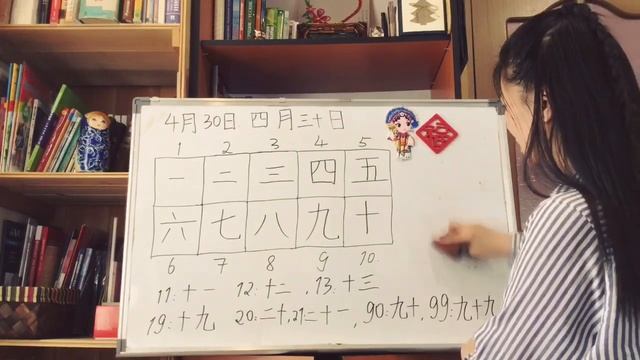 4月30日 四月三十日
1 2 3 4 5
一 二 三 四 五
六 七 八 九 十
6 7 8 9 10.
11:十一 12:十二, 13:十三
19:十九 20:二十, 21:二十一, 90:九十, 99:九十九
福